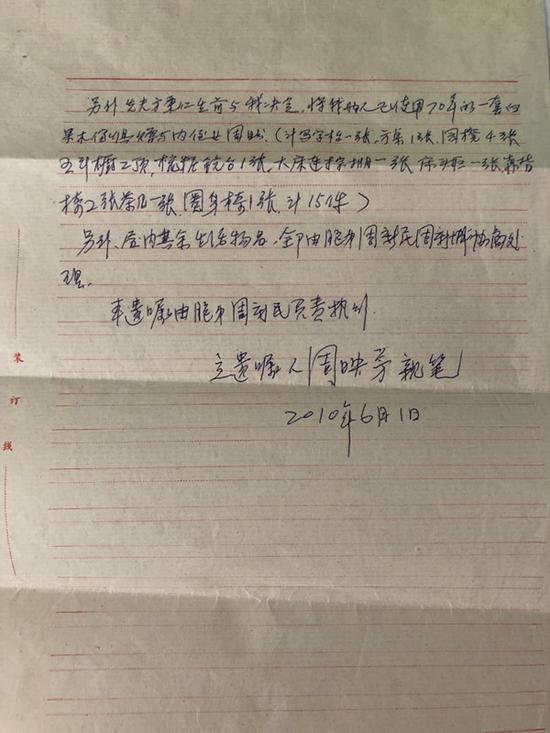 另外先夫方秉仁生前与我决定,将我俩人已使用70年的一套红
木傢俱赠与内侄女周
(计写字枱一张、方桌1张、圆櫈4张
玉叶橱二顶,梳粧镜台1张,大床连搁一张 床一张 靠背
椅2张茶几一张、圈身椅1张,计15件)
另外、屋内其余生活物品,全部由胞弟周新民周新协商处
理。
本遗嘱由胞弟周新民负责执行.
立遗嘱人周映芳亲笔
2010年6月1日
装
订
线